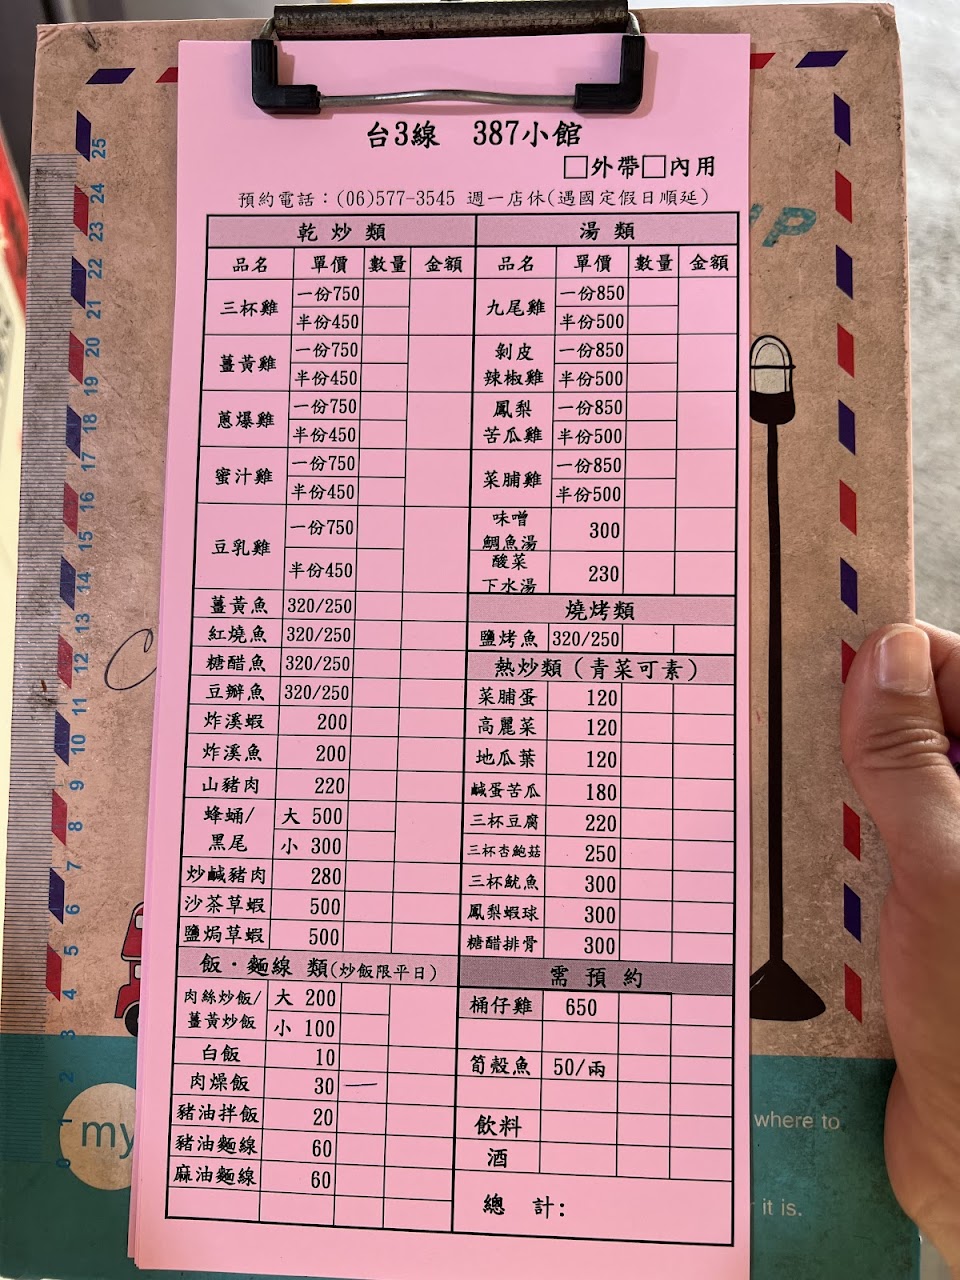 台3線 387小館
□外帶□內用
預約電話：(06)577-3545 週一店休(遇國定假日順延)
乾炒類
品名 單價 數量 金額
三杯雞 一份750
半份450
薑黃雞 一份750
半份450
蔥爆雞 一份750
半份450
蜜汁雞 一份750
半份450
豆乳雞 一份750
半份450
薑黃魚 320/250
紅燒魚 320/250
糖醋魚 320/250
豆瓣魚 320/250
炸溪蝦 200
炸溪魚 200
山豬肉 220
蜂蛹/
黑尾
大 500
小 300
炒鹹豬肉 280
沙茶草蝦 500
鹽焗草蝦 500
飯·麵線 類(炒飯限平日)
肉絲炒飯/
薑黃炒飯
大 200
小 100
白飯 10
肉燥飯 30 一
豬油拌飯 20
豬油麵線 60
麻油麵線 60
湯類
品名 單價 數量 金額
九尾雞 一份850
半份500
剝皮
辣椒雞
一份850
半份500
鳳梨
苦瓜雞
一份850
半份500
菜脯雞 一份850
半份500
味噌
鯛魚湯
300
酸菜
下水湯
230
燒烤類
鹽烤魚 320/250
熱炒類(青菜可素)
菜脯蛋 120
高麗菜 120
地瓜葉 120
鹹蛋苦瓜 180
三杯豆腐 220
三杯杏鮑菇 250
三杯魷魚 300
鳳梨蝦球 300
糖醋排骨 300
需預約
桶仔雞 650
筍殼魚 50/兩
飲料
酒
總 計:
25
24
23
22
21
20
19
18
17
16
15
14
13
12
11
10
9
8
7
6
5
4
3
2
1
0
my
where to
it is.